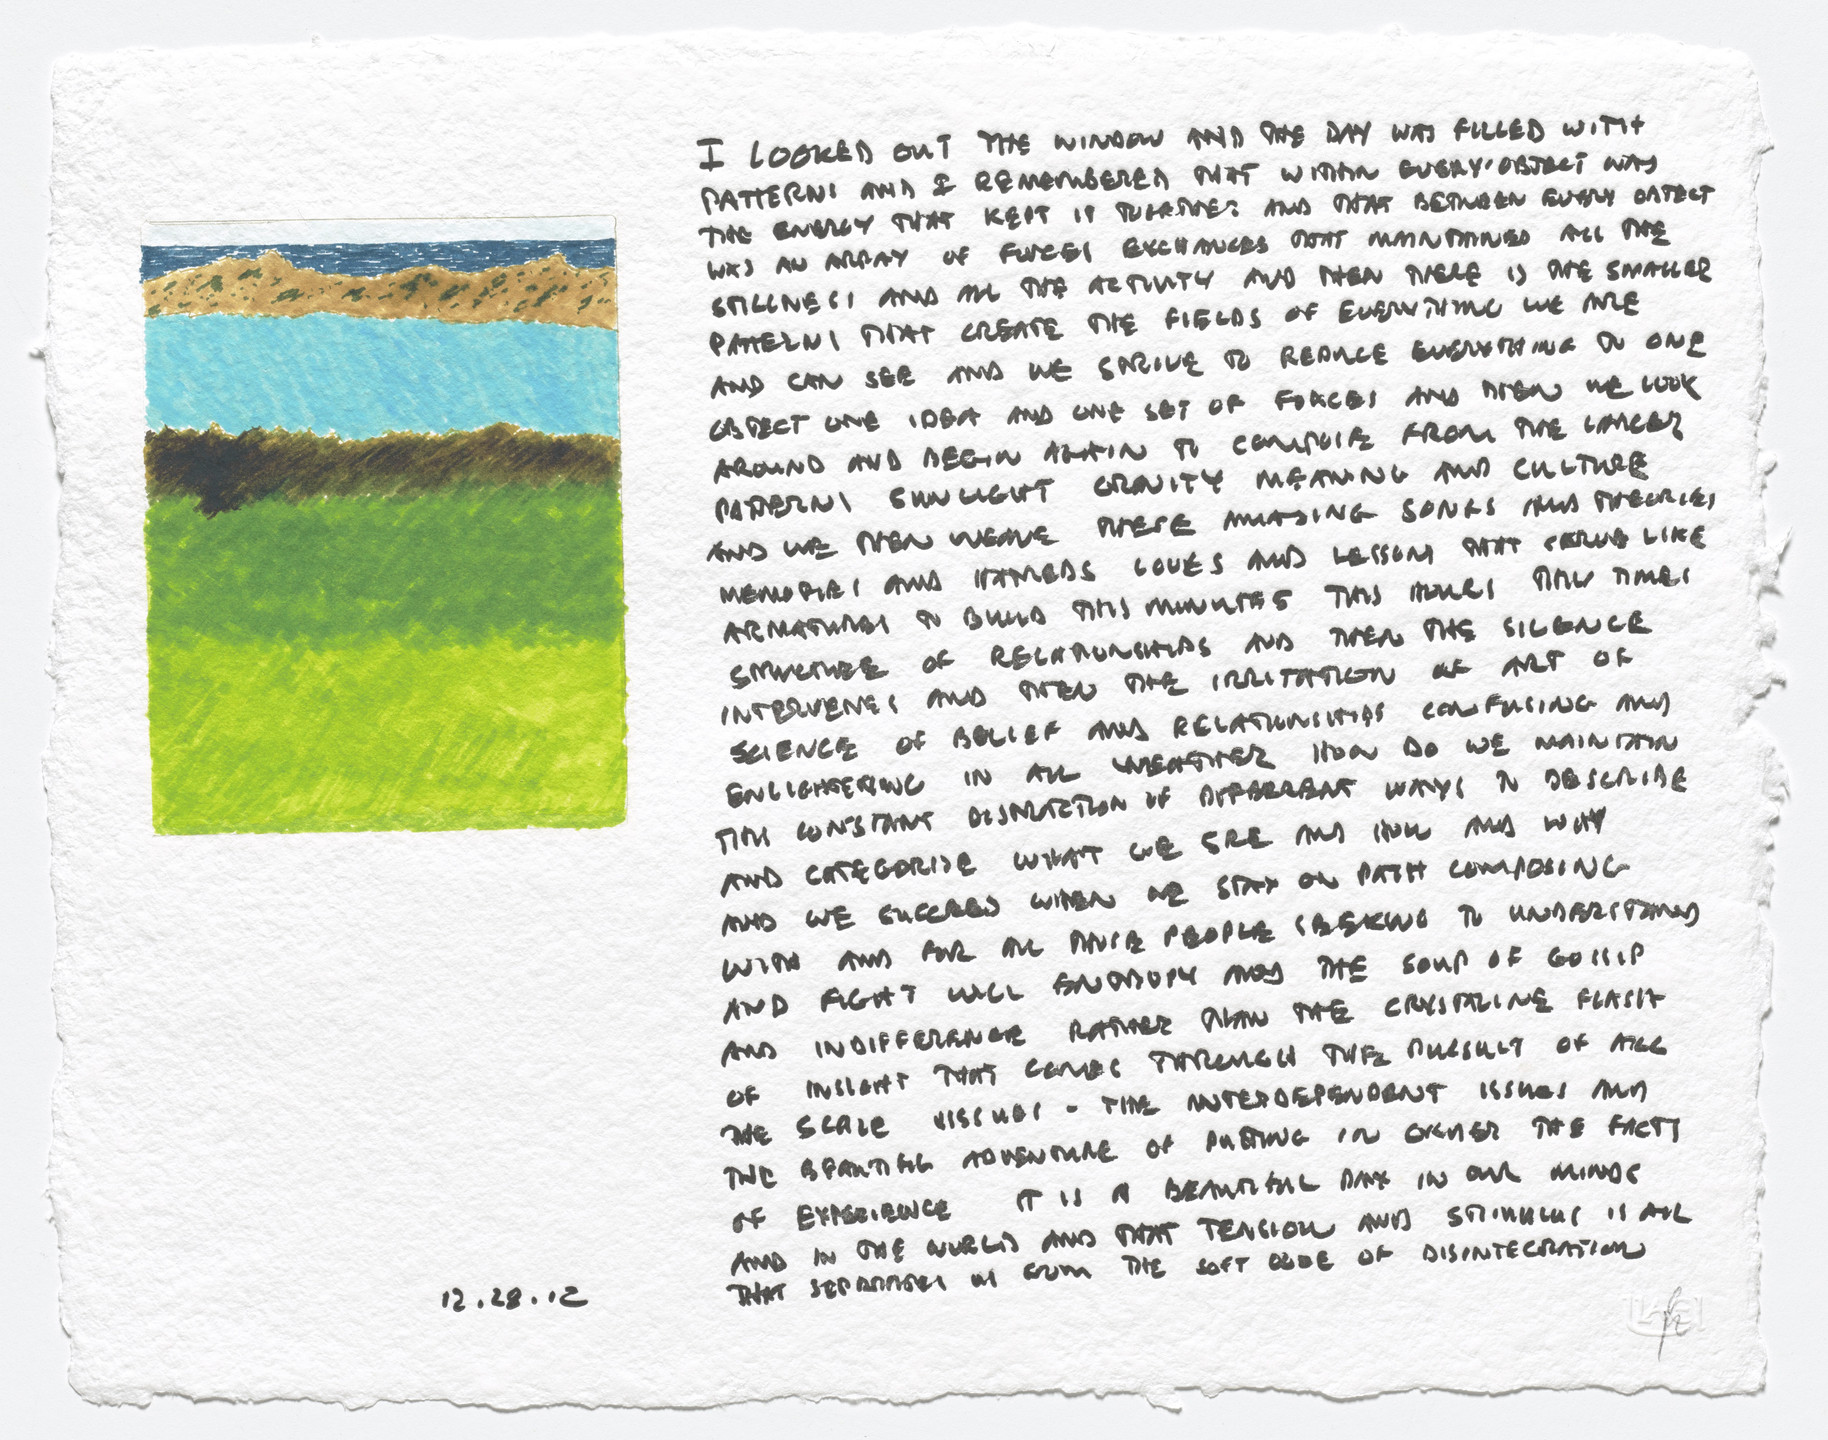 I LOOKED OUT THE WINDOW AND THE DAY WAS FILLED WITH
PATTERNS AND I REMEMBERED THAT WITHIN EVERY OBJECT WAS
THE ENERGY THAT KEPT IT TOGETHER AND THAT BETWEEN EVERY OBJECT
WAS AN ARRAY OF FORCES EXCHANGES THAT MAINTAINED ALL THE
STILLNESS AND ALL THE ACTIVITY AND THEN THERE IS THE SMALLER
PATTERNS THAT CREATE THE FIELDS OF EVERYTHING WE ARE
AND CAN SEE AND WE STRIVE TO REDUCE EVERYTHING TO ONE
OBJECT ONE IDEA AND ONE SET OF FORCES AND THEN WE LOOK
AROUND AND BEGIN AGAIN TO COMPOSE FROM THE LARGER
PATTERNS SUNLIGHT GRAVITY MEANING AND CULTURE
AND WE THEN WEAVE THESE AMAZING SONGS AND THEORIES
MEMORIES AND HATREDS LOVES AND LESSONS THAT SERVE LIKE
ARMATURES TO BUILD THIS MINUTES THIS HOURS THIS TIMES
STRUCTURE OF RELATIONSHIPS AND THEN THE SILENCE
INTERVENES AND THEN THE IRRITATION OF ART OF
SCIENCE OF BELIEF AND RELATIONSHIPS CONFUSING AND
ENLIGHTENING IN ALL WEATHER HOW DO WE MAINTAIN
THIS CONSTANT DISTRACTION OF DIFFERENT WAYS TO DESCRIBE
AND CATEGORIZE WHAT WE SEE AND HOW AND WHY
AND WE SUCCEED WHEN WE STAY ON PATH COMPOSING
WITH AND FOR ALL THOSE PEOPLE SEEKING TO UNDERSTAND
AND FIGHT WILL ENTROPY AND THE SOUP OF GOSSIP
AND INDIFFERENCE RATHER THAN THE CRYSTALINE FLASH
OF INSIGHT THAT COMES THROUGH THE PURSUIT OF ALL
THE SCALE ISSUES - THE INTERDEPENDENT ISSUES AND
THE BEAUTIFUL ADVENTURE OF PUTTING IN ORDER THE FACTS
OF EXPERIENCE IT IS A BEAUTIFUL DAY IN OUR MINDS
AND IN THE WORLD AND THAT TENSION AND STIMULUS IS ALL
THAT SEPARATES US FROM THE SOFT CODE OF DISINTEGRATION
12.28.12